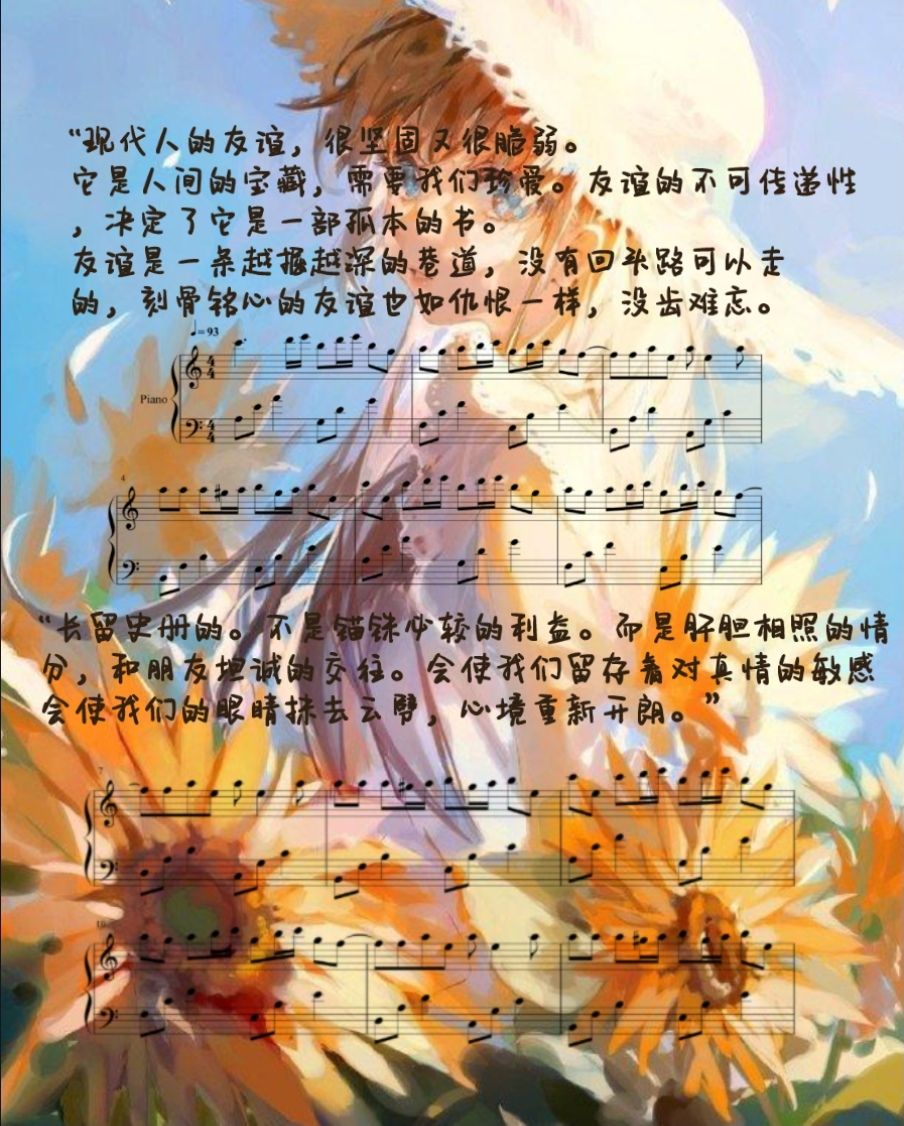 “现代人的友谊，很坚固又很脆弱。
它是人间的宝藏，需要我们珍爱。友谊的不可传递性
，决定了它是一部孤本的书。
友谊是一条越掘越深的巷道，没有回头路可以走
的，刻骨铭心的友谊也如仇恨一样，没齿难忘。
♩=93
Piano
4
“长留史册的。不是锱铢必较的利益。而是肝胆相照的情
分，和朋友坦诚的交往。会使我们留存着对真情的敏感
会使我们的眼睛抹去云翳，心境重新开朗。”
7
10